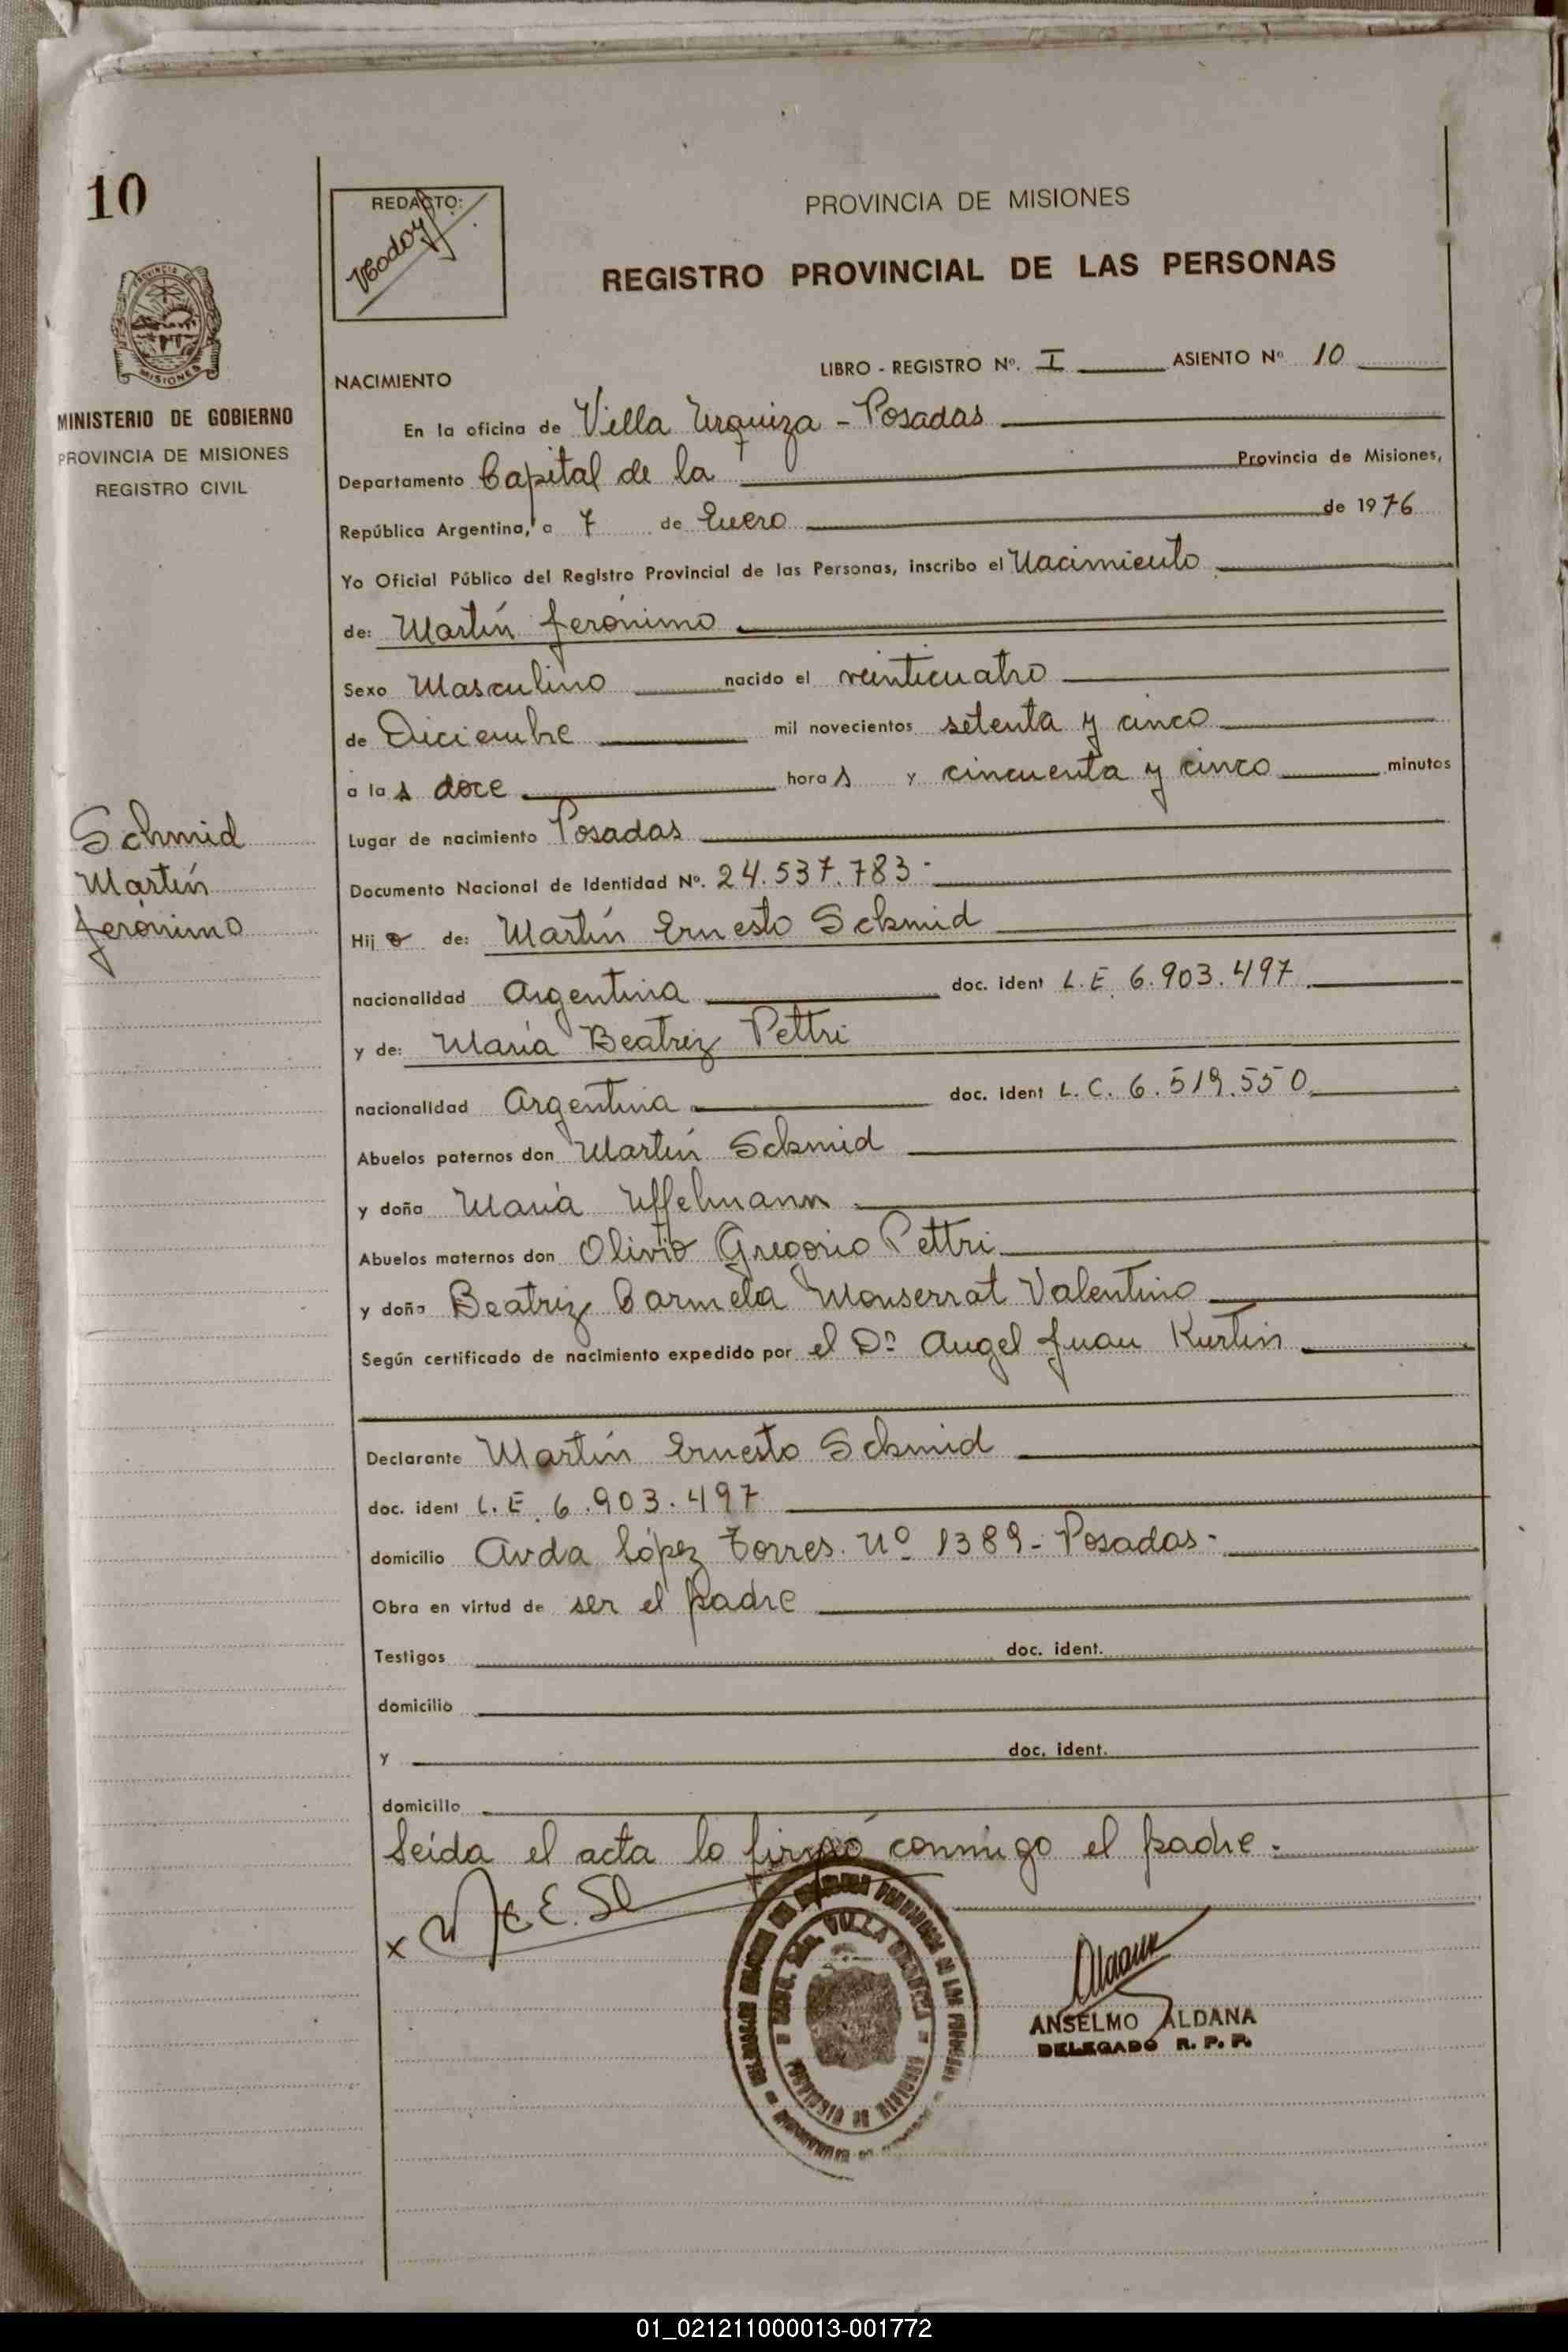 10
REDACTO:
PROVINCIA DE MISIONES
REGISTRO PROVINCIAL DE LAS PERSONAS
MISIONES
MINISTERIO DE GOBIERNO
PROVINCIA DE MISIONES
REGISTRO CIVIL
LIBRO - REGISTRO Nº. I ASIENTO Nº 10
NACIMIENTO
En la oficina de Villa Urquiza - Posadas
Departamento Capital de la Provincia de Misiones,
República Argentina, a 7 de Enero de 1976
Yo Oficial Público del Registro Provincial de las Personas, inscribo el Nacimiento
de: Martín Jerónimo
Sexo Masculino nacido el veinticuatro
de Diciembre mil novecientos setenta y cinco
a las doce horas y cincuenta y cinco minutos
Schmid
Martín
Jerónimo
Lugar de nacimiento Posadas
Documento Nacional de Identidad Nº. 24.537.783-
Hijo de: Martín Ernesto Schmid
nacionalidad Argentina doc. ident L.E. 6.903.497
y de: María Beatriz Pettri
nacionalidad Argentina doc. ident L.C. 6.519.550
Abuelos paternos don Martín Schmid
y doña María Uffelmann
Abuelos maternos don Olivio Gregorio Pettri
y doña Beatriz Carmela Monserrat Valentino
Según certificado de nacimiento expedido por el Dr. Angel Juan Kurtin
Declarante Martín Ernesto Schmid
doc. ident L.E. 6.903.497
domicilio Avda López Torres. Nº 1389- Posadas-
Obra en virtud de ser el padre
Testigos doc. ident.
domicilio
y doc. ident.
domicilio
Leída el acta lo firmó conmigo el padre.
x
ANSELMO ALDANA
DELEGADO R. P. P.
01_021211000013-001772